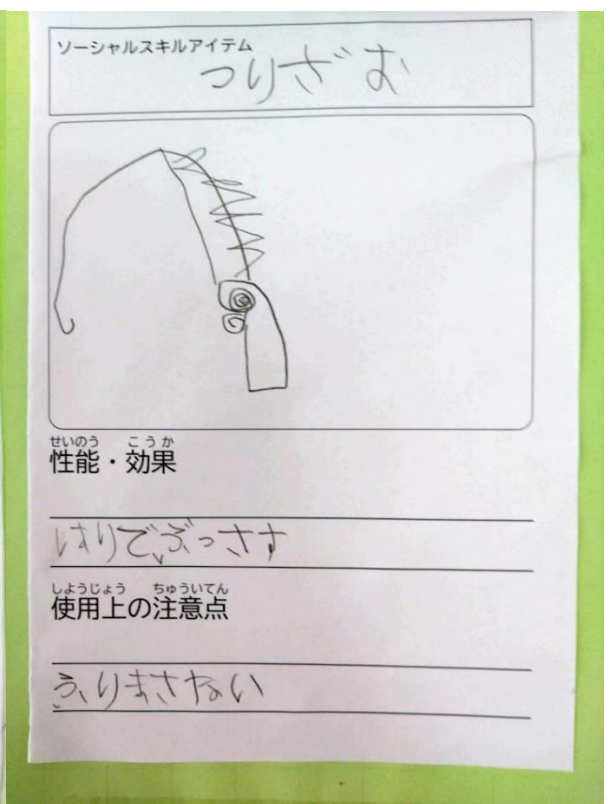 ソーシャルスキルアイテム
つりざお
せいのう こうか
性能・効果
はりでぶっさす
しようじょう ちゅういてん
使用上の注意点
ふりまさない